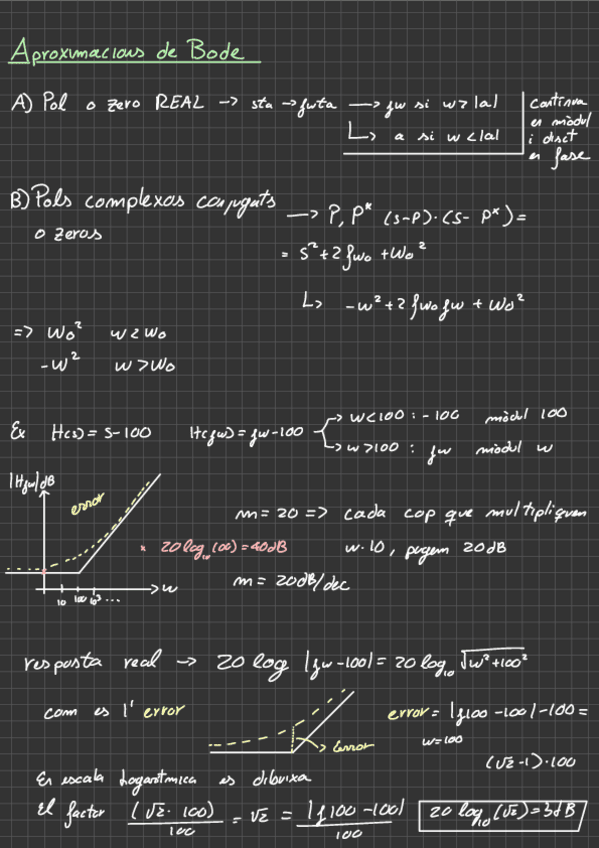 Aproximacions de Bode
A) Pol o zero REAL → s+a → jw+a → jw si w>|a|
↳ a si w<|a|
continua
en mòdul
i disct
en fase
B) Pols complexos conjugats
o zeros
→ P, P* (s-P)·(s- P*) =
= s²+2ξw₀ +w₀²
↳ -w²+2ξw₀jw + w₀²
=> w₀² w<w₀
-w² w>w₀
Ex H(s)= s-100 H(jw)=jw-100
→ w<100 : -100 mòdul 100
→ w>100 : jw mòdul w
|Hjw|dB
error
* 20log₁₀(100)=40dB
10 100 10³ ... w
m=20 => cada cop que multipliquem
w·10, pugem 20dB
m= 20dB/dec
resposta real → 20 log |jw-100|= 20log₁₀ √w²+100²
com es l'error
→ Error
error= |j100-100|-100 =
w=100
(√2-1)·100
En escala logarítmica es dibuixa
El factor (√2·100)/100 = √2 = |j100-100|/100
20 log₁₀(√2)=3dB